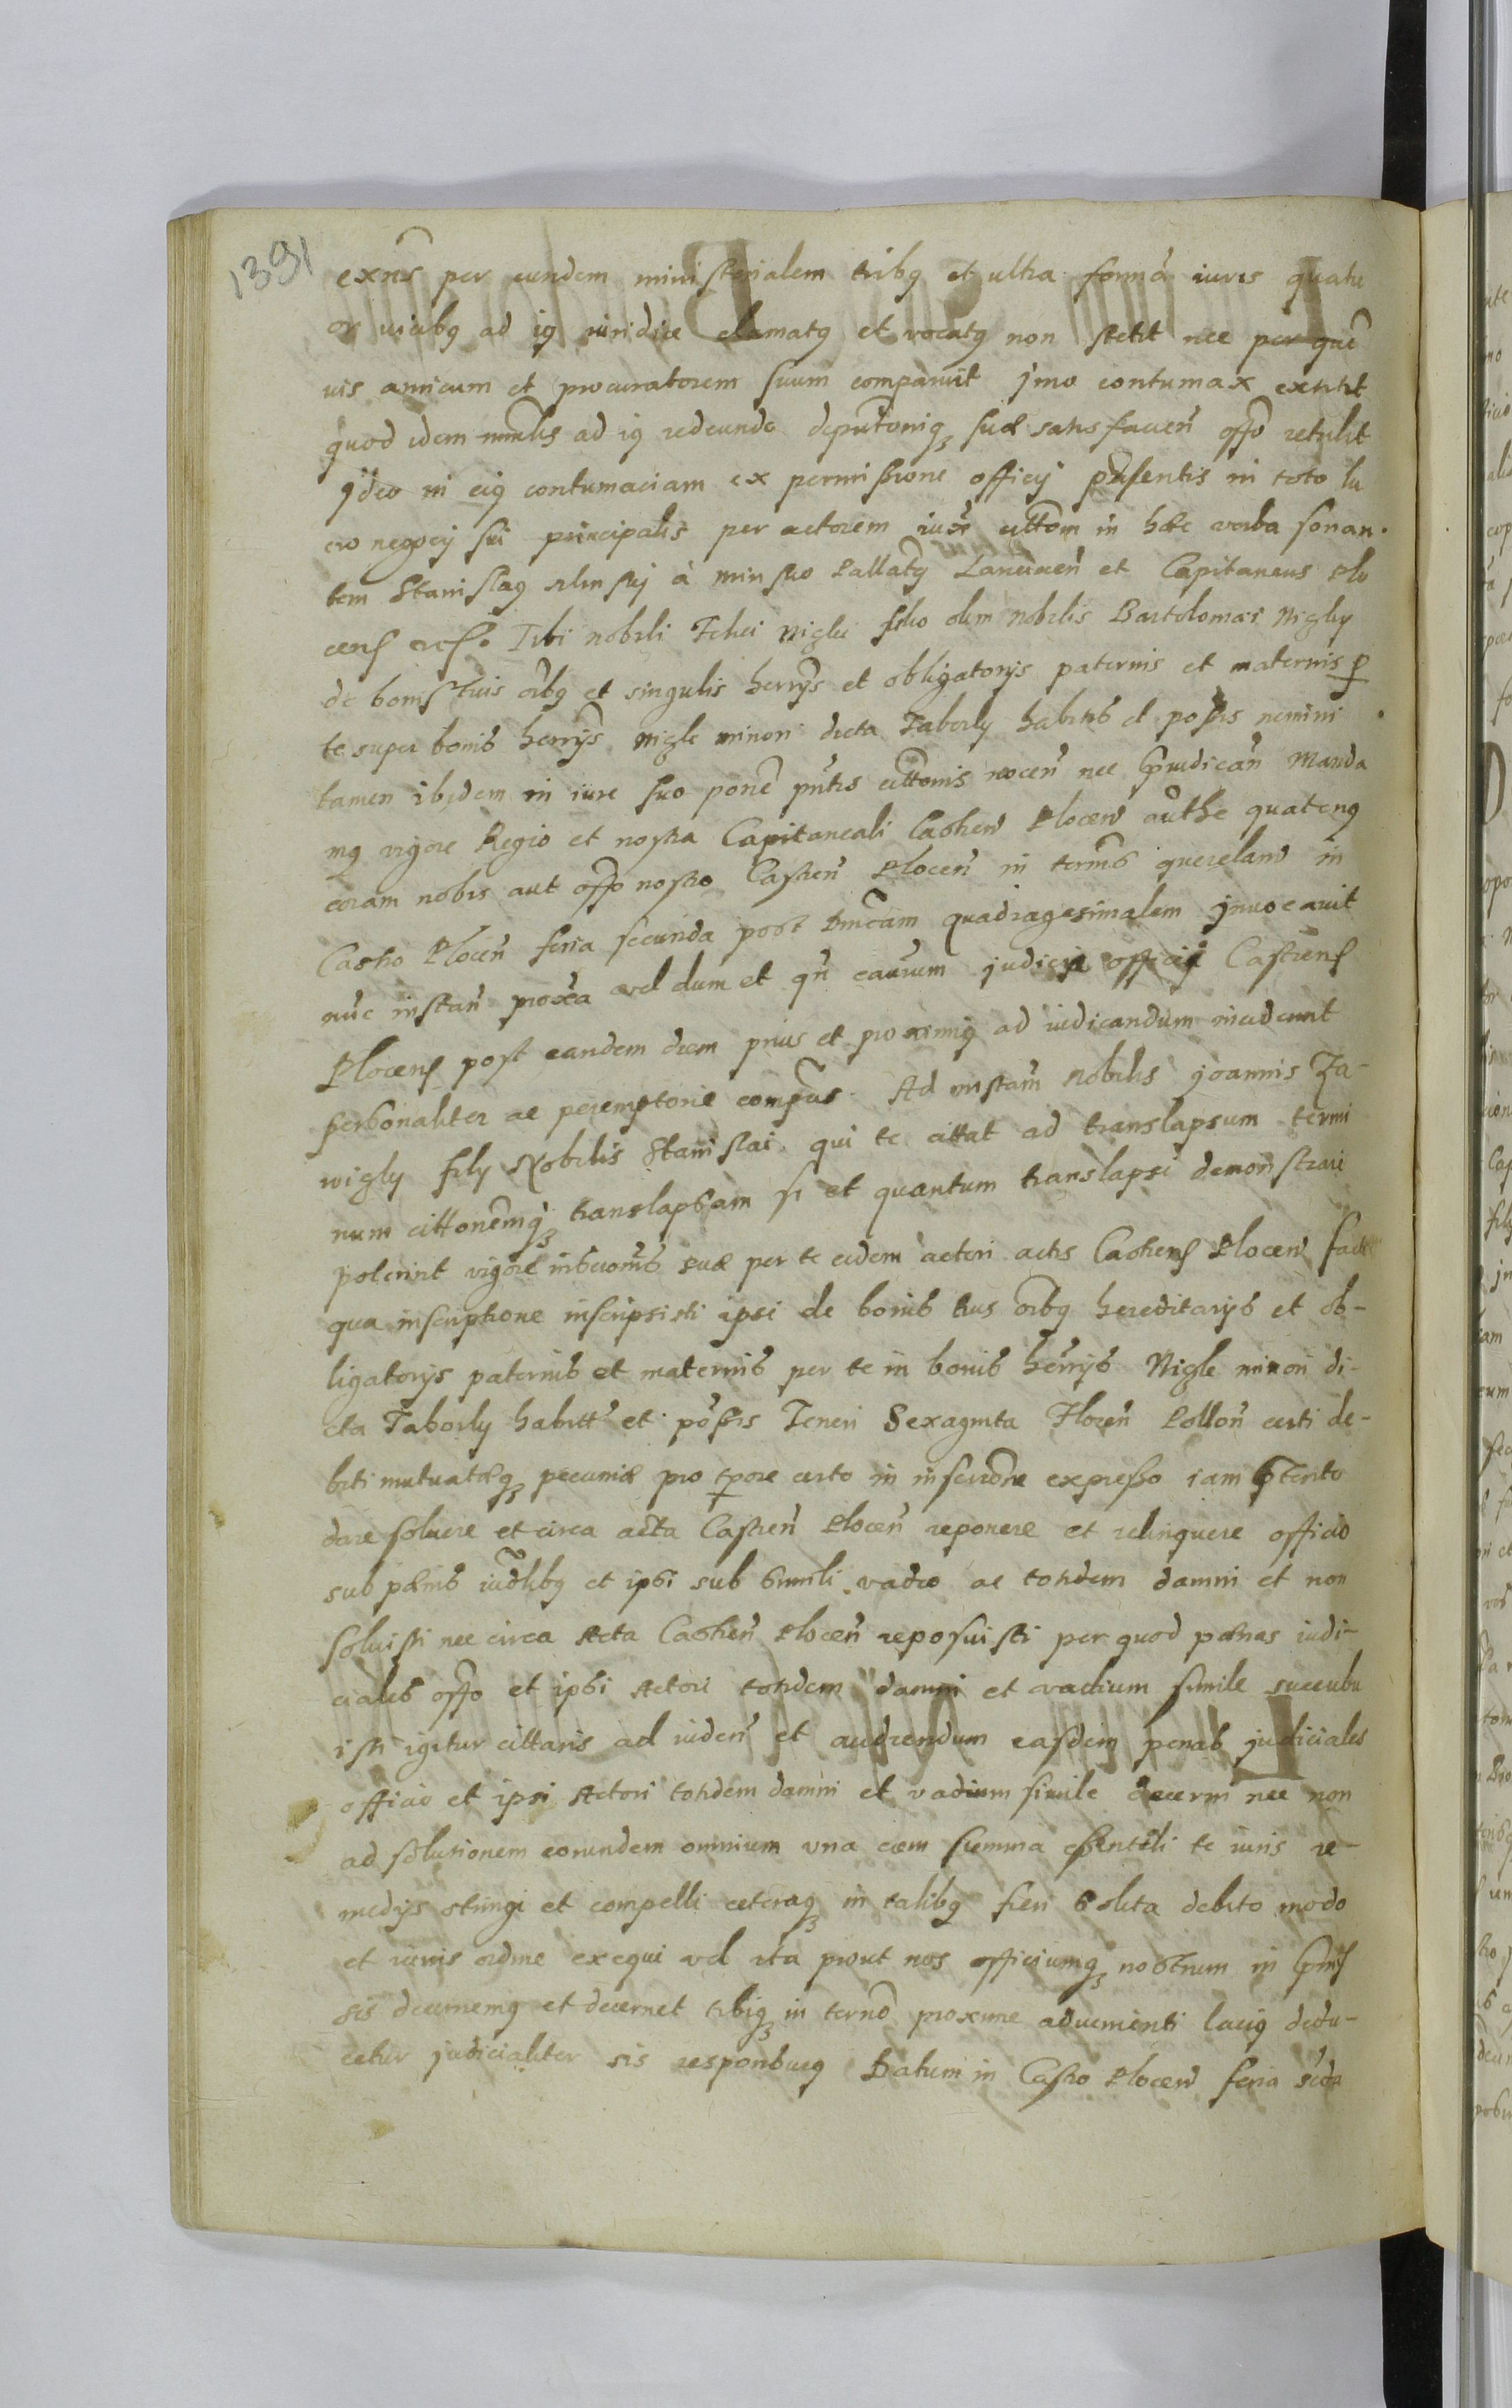 1391
exñs per eundem ministerialem tribq et ultra formā iuris quatu
or uicibq ad iq iuridice clamatq et vocatq non stetit nec per quē
uis amicum et procuratorem suum comparuit jmo contumax extitit
quod idem minlis ad iq redeundo deputonisq suæ satisfacien̄ offo retulit
jdeo in eiq contumaciam ex permissione officij præsentis in toto lu
cro negocij sui principalis per actorem cittom in hæc verba sonan
tem Stanislaq à minsko Pallatq Lancicien̄ et Capitaneus Plo
cens̄ Tibi nobili nigli filio olim nobilis Bartolomæi nigly
de bonis tuis oībq et singulis herrijs et obligatorijs paternis et maternis p
te super bonis herrijs nigle minori dicta Taborly habitis et possis nemini
tamen ibidem in iure suo ponē pntis cittonis nocen̄ nec præiudican̄ Manda
mq vigore Regio et nostra Capitaneali Castren̄ Plocen̄ authe quatenq
coram nobis aut offo nostro Castren̄ Plocen̄ in termīs querelarū in
Castro Plocen̄ feria secunda post Dnīcam quadragesimalem jnuocauit
nūc instan̄ prox̄a vel dum et qn̄ causum judicia officij Castrens̄
Plocens̄ post eandem diem prius et proximq ad iudicandum incident
personaliter ac peremptorie compās Ad instan̄ Nobilis joannis Za-
wigly filij Nobilis Stanislai qui te cittat ad translapsum termi
num cittonēmq translapsam si et quantum translapsi demonstrari
poterint vigore inscrōnis suæ per te eidem actori actis Castrens̄ Plocen̄ factæ
qua inscriptione inscripsisti ipsi de bonis tuis oībq hereditarijs et ob-
ligatorijs paternis et maternis per te in bonis herrijs Nigle minori di-
cta Taborly habitt et possis Teneri Sexaginta Floren̄ Pollon̄ certi de-
biti mutuatæq pecuniæ pro tpore certo in inscrione expresso iam pterito
dare soluere et circa acta Castren̄ Plocen̄ reponere et relinquere officio
sub pænis iudlibq et ipsi sub simili vadio ac totidem damni et non
soluisti nec circa Acta Castren̄ Plocen̄ reposuisti per quod pænas iudi-
ciales offo et ipsi Actori totidem damni et vadium simile succubu
isti igitur cittaris ad uiden̄ et audiendum easdem penas judiciales
officio et ipsi Actori totidem damni et vadium simile decerni nec non
ad solutionem eorundem omnium vna cum summa te iuris re-
medijs stringi et compelli ceteraq in talibq fieri solita debito modo
et iuris ordine exequi vel ita prout nos officiumq nostrum in pmis̄
sis decernemq et decernet tibiq in termō proxime aduenienti laciq dedu-
cetur judicialiter sis responsurq Datum in Castro Plocen̄ feria scda